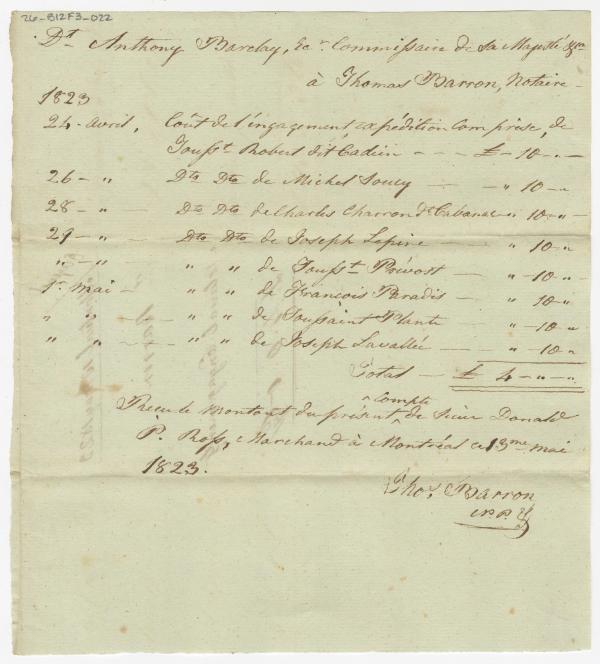 26-B12F3-022
Dt. Anthony Barclay, Ecr. Commissaire de Sa Majesté &ca
à Thomas Barron, Notaire -
1823
24 - avril, Coût de l'engagement, expédition comprise, de
Tousst. Robert dit Cadieu - - - £ - 10 - " -
26 - " Dto Dto de Michel Soucy - - " 10 - "
28 - " Dto Dto de Charles Charron dt Cabanac - " 10 - "
29 - " - Dto Dto de Joseph Lepine - - " 10 - "
" - " - " " de Tousst. Prévost - - " - 10 - "
1r. mai - " " de François Paradis - " 10 - "
" " - - " " de Toussaint Plante - " - 10 - "
" " - - " " de Joseph Lavallée - - " - 10 - "
Total - £ 4 - " - "
Recu le montant du présent ^compte de Sieur Donald
P. Ross, Marchand à Montréal ce 13me mai
1823.
Thos. Barron
N.P.